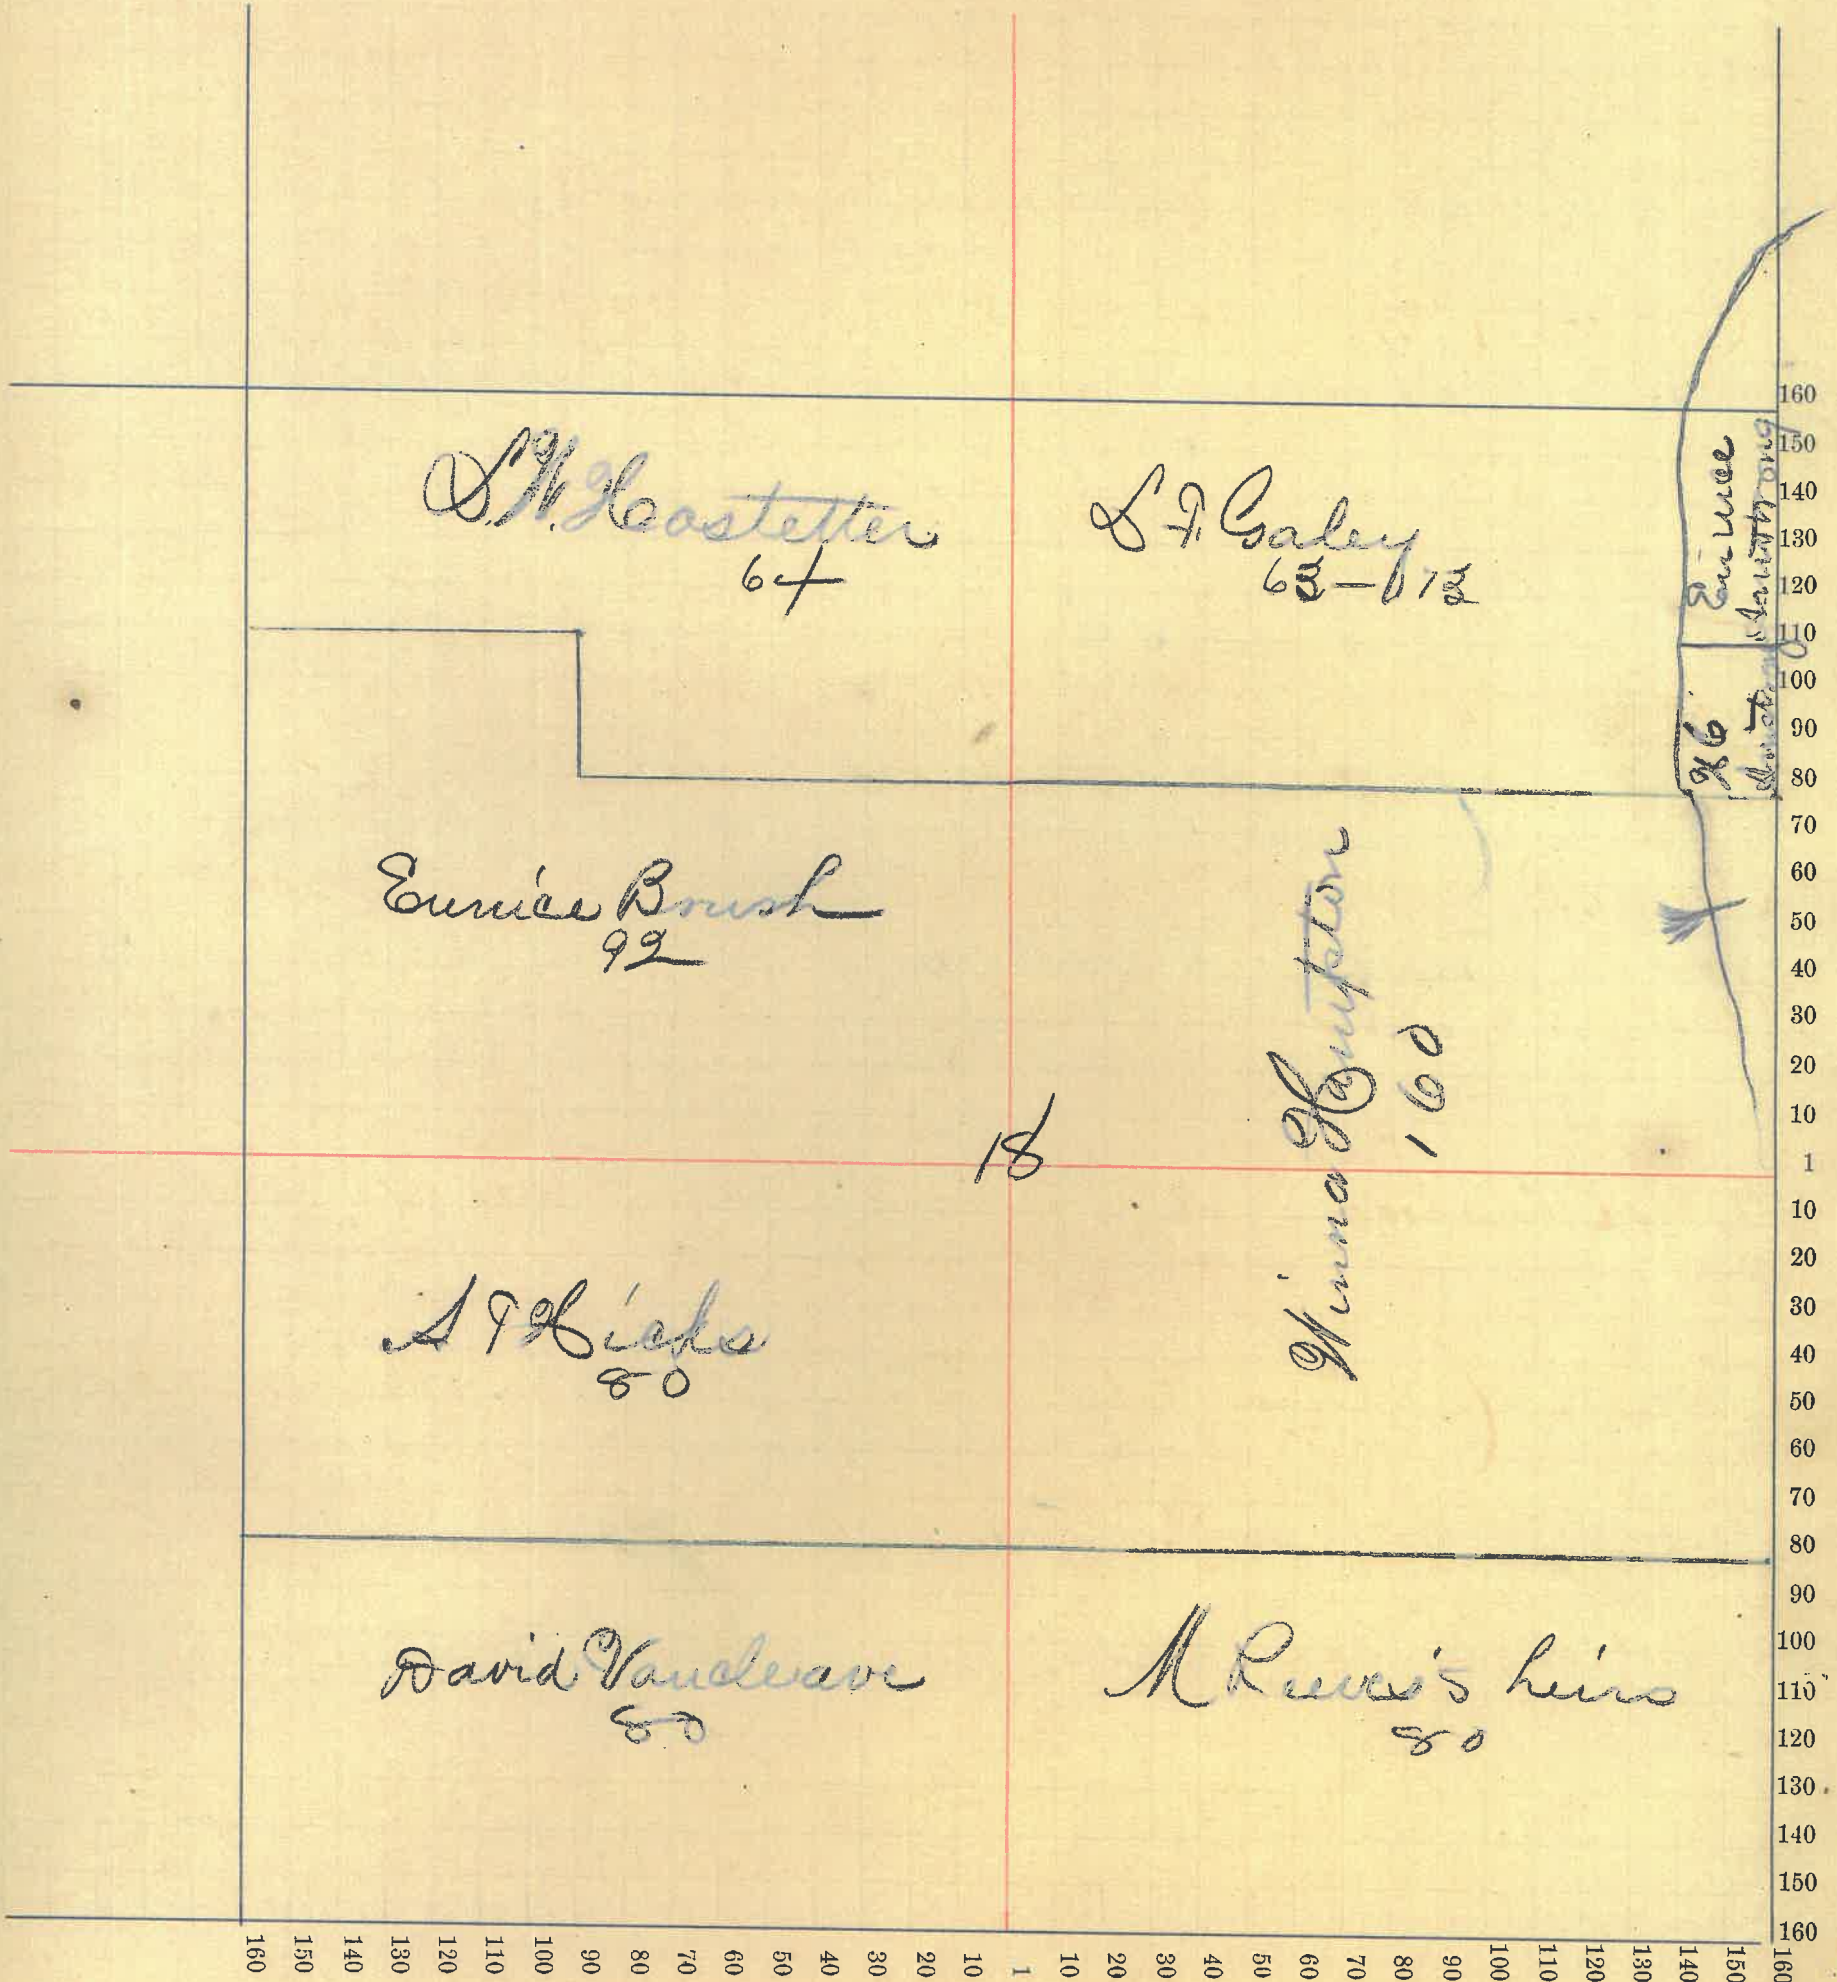 S. W. Hostetter
64
S F Galey
Eunice
Armstrong
Eunice Brush
92
Hampton
160
18
S T Hicks
80
David Vancleave
80
M Reeves's heirs
80
160
150
140
130
120
110
100
90
80
70
60
50
40
30
20
10
1
10
20
30
40
50
60
70
80
90
100
110
120
130
140
150
160
160 150 140 130 120 110 100 90 80 70 60 50 40 30 20 10 1 10 20 30 40 50 60 70 80 90 100 110 120 130 140 150 160